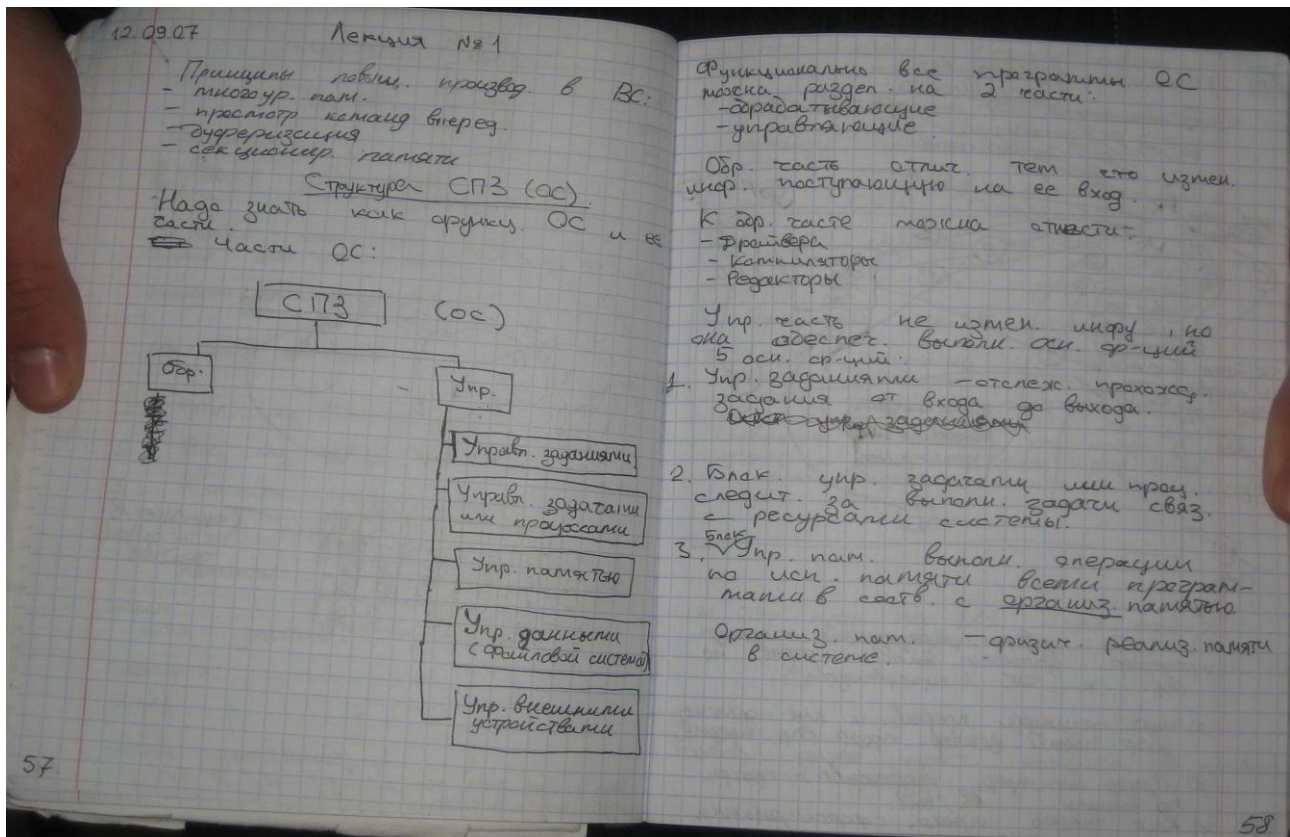 12.09.07
Лекция № 1
Принципы повыш. производ. в ВС:
- многоур. пам.
- просмотр команд вперед.
- буферизация
- секционир. памяти
Структура СПЗ (ОС).
Надо знать как функц. ОС и ее
части.
Части ОС:
СПЗ (ОС)
Обр.
Упр.
Управл. заданиями
Управл. задачами
или процессами
Упр. памятью
Упр. данными
(файловой системой)
Упр. внешними
устройствами
57
Функционально все программы ОС
можна раздел. на 2 части:
- обрабатывающие
- управляющие
Обр. часть отлич. тем что измен.
инф. поступающую на ее вход.
К обр. часте можна отнести:
- Драйвера
- Компиляторы
- Редакторы
Упр. часть не измен. инфу, но
она обеспеч. выполн. осн. ф-ций
5 осн. ф-ций:
1. Упр. заданиями - отслеж. прохожд.
задания от входа до выхода.
2. Блок. упр. задачами или проц.
следит. за выполн. задачи связ.
с ресурсами системы.
3. Блок Упр. пам. выполн. операции
по исп. памяти всеми програм-
мами в соотв. с организ. памятью.
Организ. пам. - физич. реализ. памяти
в системе.
58